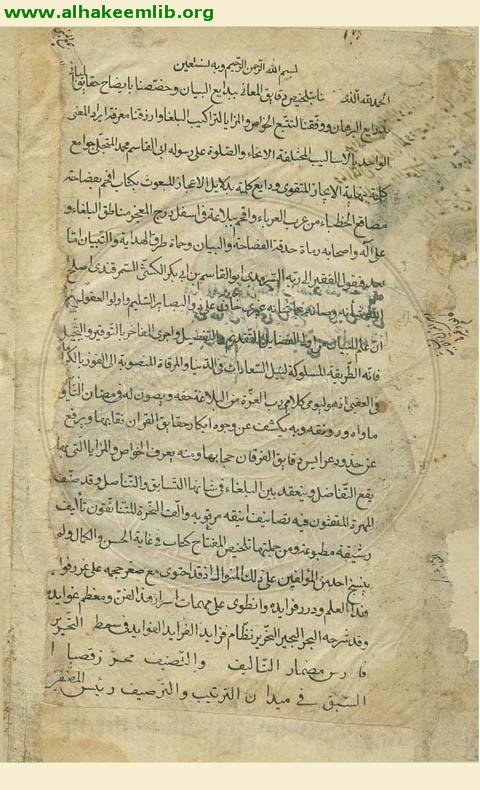 www.alhakeemlib.org
بسم الله الرحمن الرحيم وبه نستعين
الحمد لله الذى بتلخيص دقايق المعانى ببدايع البيان وخصصنا بايضاح حقايق
بدايع البرهان ووفقنا لتتبع الخواص والمزايا لتراكيب البلغا وارزقنا معرفة ايراد المعنى
الواحد بالاساليب المختلفة الانحاء والصلوة على رسوله ابى القاسم محمد جوامع
بنهاية الاعجاز ودايع كلمته بدلايل الاعجاز المبعوث بكتاب افحم بفصاحته
مصاقع الخطباء من عرب العرباء وافحم ببلاغته فى اسفل درج العجز مناطق البلغاء و
على آله واصحابه حدقة الفصاحة والبيان وحماة طرق الهداية والتبيان اما
بعد فيقول الفقير الى ربه ابو القاسم بن ابى بكر الليثى السمرقندى اصلح
الله شانه وصانه عما شانه غير خاف على ذوى البصاير السليم واولو العقول
ان علم البيان من الفضايل بالتقديم والتفضيل واحرى المفاخر بالتوقير والتبجيل
فانه الطريقة المسلوكة لنيل السعادات فى الدنيا والمرقاة المنصوبة الى الفوز
فى العقبى اذ هو يوفى كلام رب العزة من البلاغة حقه ويصون له فى مضان التاو
ماواه ورونقه وبه يكشف عن وجوه ابكار حقايق القران نقابها ويرفع
عن خدور عرايس دقايق الفرقان حجابها ومنه يعرف الخواص والمزايا التى بها
يقع التفاضل وينعقد بين البلغاء فى شانها التسابق والتناضل وقد صنف
المهرة المفتنون فيه تصانيف انيقة مرقوبه والف السحرة المتانقون تآليف
رشيقة مطبوعة ومن جملتها تلخيص المفتاح كتاب فى غاية الحسن والكمال ولم
ينسج احد من المؤلفين على ذلك المنوال اذ قد احتوى مع صغر حجمه على غرر فوا
هذا العلم ودرر فرايده وانطوى على مهمات اسرار هذا الفن ومعظم عوايده
وقد شرحه البحر الحبر النحرير نظام فرايد الفرايد الفوايد فى سمط التحرير
فارس مضمار التاليف والتصنيف محرز قصبا
السبق فى ميدان الترتيب والترصيف رئيس